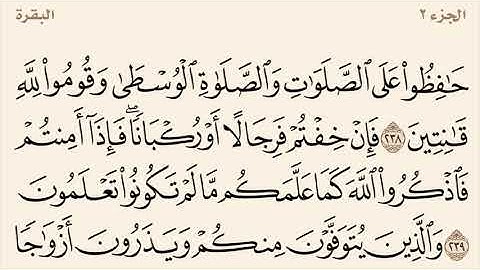 الجزء ٢
البقرة
حَٰفِظُوا۟ عَلَى ٱلصَّلَوَٰتِ وَٱلصَّلَوٰةِ ٱلْوُسْطَىٰ وَقُومُوا۟ لِلَّهِ
قَٰنِتِينَ ٢٣٨ فَإِنْ خِفْتُمْ فَرِجَالًا أَوْ رُكْبَانًا ۖ فَإِذَآ أَمِنتُمْ
فَٱذْكُرُوا۟ ٱللَّهَ كَمَا عَلَّمَكُم مَّا لَمْ تَكُونُوا۟ تَعْلَمُونَ
٢٣٩ وَٱلَّذِينَ يُتَوَفَّوْنَ مِنكُمْ وَيَذَرُونَ أَزْوَٰجًا